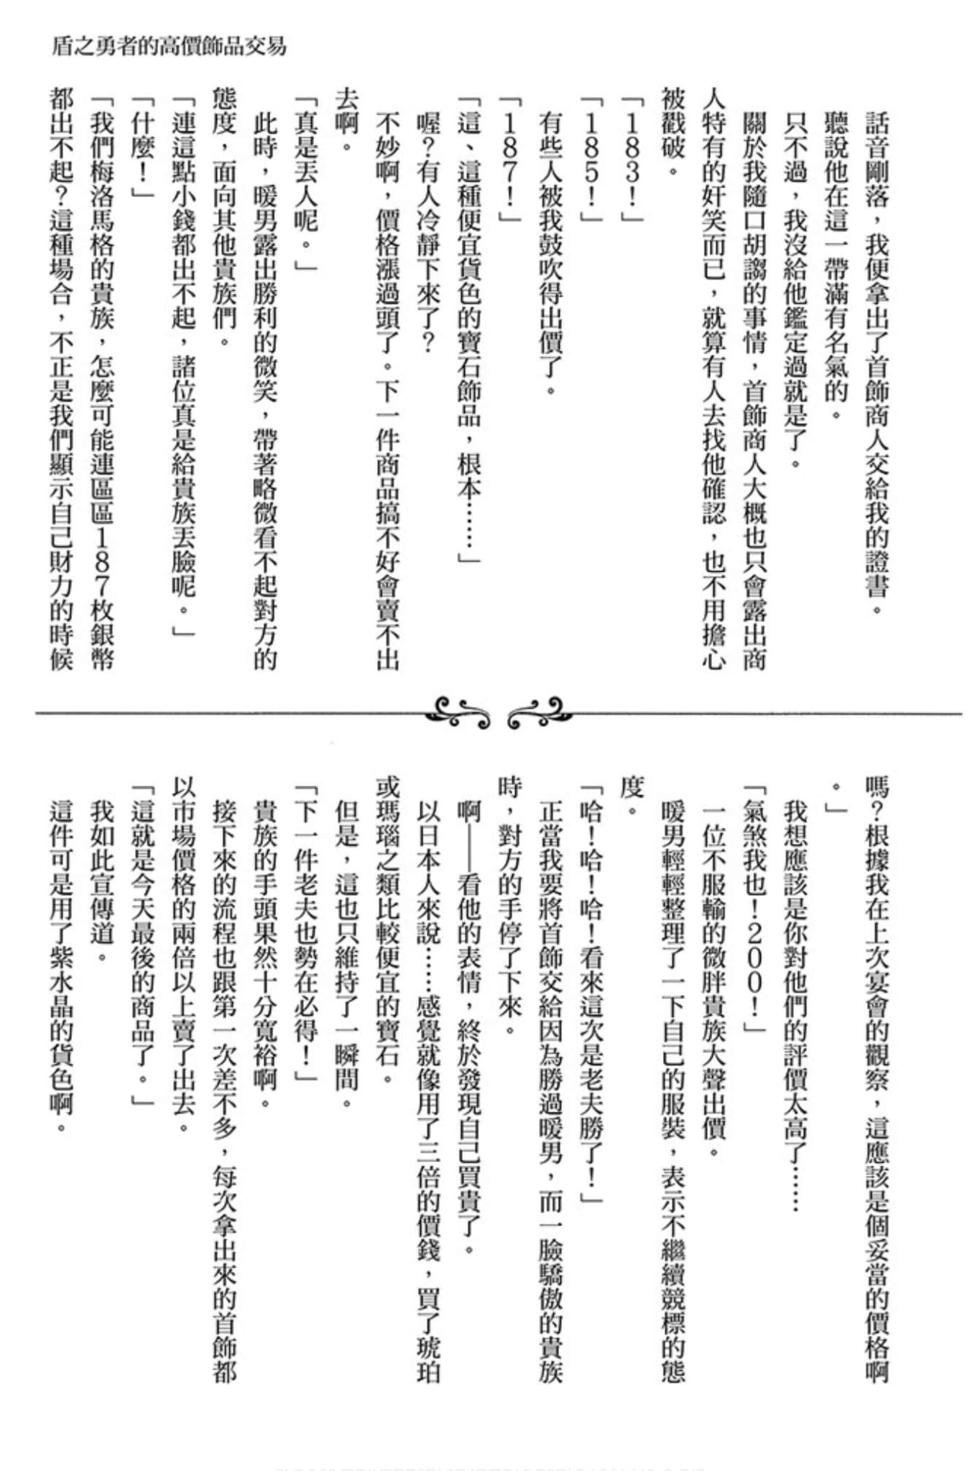 盾之勇者的高價飾品交易
話音剛落，我便拿出了首飾商人交給我的證書。
聽說他在這一帶滿有名氣的。
只不過，我沒給他鑑定過就是了。
關於我隨口胡謅的事情，首飾商人大概也只會露出商
人特有的奸笑而已，就算有人去找他確認，也不用擔心
被戳破。
「183！」
「185！」
有些人被我鼓吹得出價了。
「187！」
「這、這種便宜貨色的寶石飾品，根本……」
喔？有人冷靜下來了？
不妙啊，價格漲過頭了。下一件商品搞不好會賣不出
去啊。
「真是丟人呢。」
此時，暖男露出勝利的微笑，帶著略微看不起對方的
態度，面向其他貴族們。
「連這點小錢都出不起，諸位真是給貴族丟臉呢。」
「什麼！」
「我們梅洛馬格的貴族，怎麼可能連區區187枚銀幣
都出不起？這種場合，不正是我們顯示自己財力的時候
嗎？根據我在上次宴會的觀察，這應該是個妥當的價格啊
。」
我想應該是你對他們的評價太高了……
「氣煞我也！200！」
一位不服輸的微胖貴族大聲出價。
暖男輕輕整理了一下自己的服裝，表示不繼續競標的態
度。
「哈！哈！哈！看來這次是老夫勝了！」
正當我要將首飾交給因為勝過暖男，而一臉驕傲的貴族
時，對方的手停了下來。
啊——看他的表情，終於發現自己買貴了。
以日本人來說……感覺就像用了三倍的價錢，買了琥珀
或瑪瑙之類比較便宜的寶石。
但是，這也只維持了一瞬間。
「下一件老夫也勢在必得！」
貴族的手頭果然十分寬裕啊。
接下來的流程也跟第一次差不多，每次拿出來的首飾都
以市場價格的兩倍以上賣了出去。
「這就是今天最後的商品了。」
我如此宣傳道。
這件可是用了紫水晶的貨色啊。